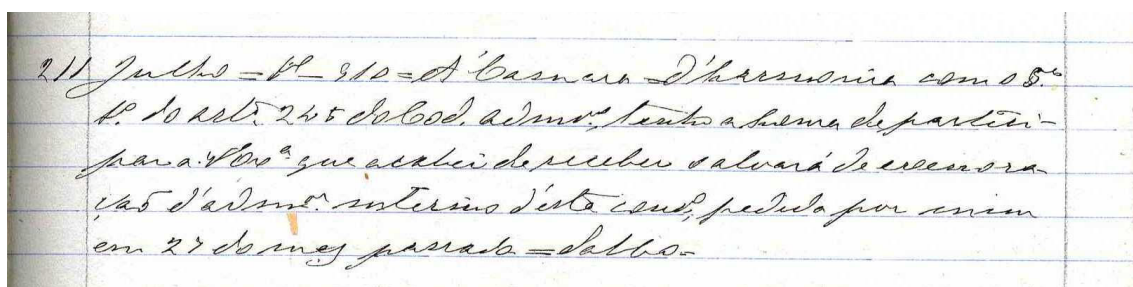 211 Julho = 1º - 910 = A' Camara = D'harmonia com o §º
1º. do artº. 245 do Cod. admvº, tenho a honra de partici-
par a V. Exª. que acabei de receber o alvará de exonera-
ção d'admorº. interino d'este concº, pedida por mim
em 27 do mez passado =